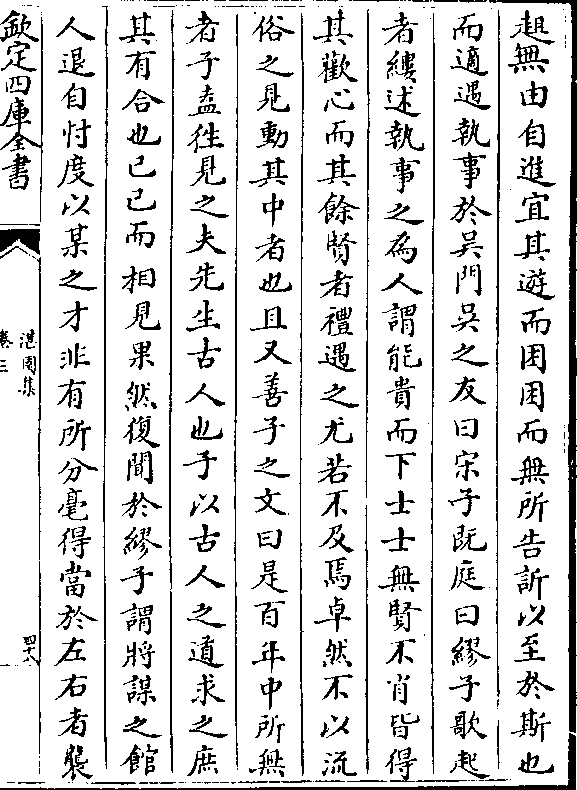 趄無由自進宜其遊而困困而無所告訴以至於斯也
而適遇執事於吳門吳之友曰宋子既庭曰繆子歌起
者縷述執事之為人謂能貴而下士士無賢不肖皆得
其歡心而其餘賢者禮遇之尤若不及焉卓然不以流
俗之見動其中者也且又善子之文曰是百年中所無
者子盍徃見之夫先生古人也子以古人之道求之庶
其有合也已已而相見果然復聞於繆子謂將謀之館
人退自忖度以某之才非有所分毫得當於左右者襲
欽定四庫全書
湛園集
卷三
四十八